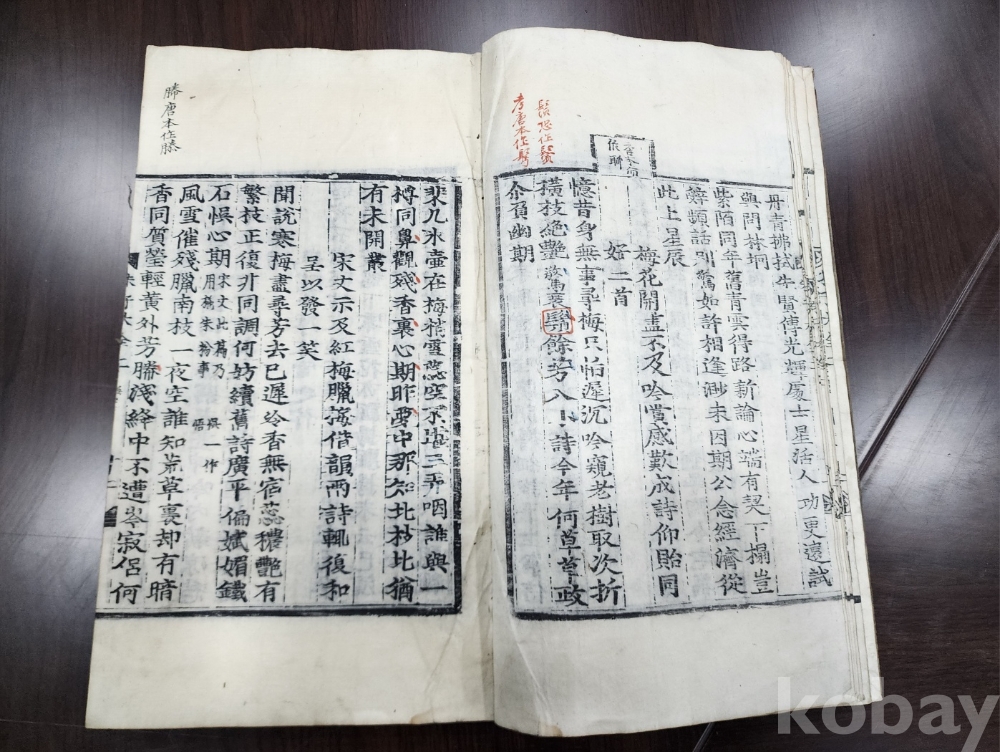 丹青拂拭賢傳光輝處士星活人功更遠試
與問林坰
紫陌同年舊青雲得路新論心端有契下榻豈
辭頻話別驚如許相逢渺未因期公念經濟從
此上星辰
梅花開盡不及吟賞感歎成詩仰貽同
好二首
憶昔身無事尋梅只怕遲沉吟窺老樹取次折
橫枝絶艷驚衰餘芳入小詩今年何草草政
余負幽期
恐作鬢
考唐本作
棐几冰壺在梅梢雪蘂空不堪三弄咽誰與一
摶同鼻觀殘香裏心期昨夢中那知北枝北猶
有未開叢
宋文示及紅梅臘梅借韻兩詩輒復和
呈以發一笑
聞說寒梅盡尋芳去已遲冷香無宿蘂穠艷有
繁枝正復非同調何妨續舊詩廣平偏斌媚鐵
石悞心期
宋文此篇乃
用朱粉事
一作
風雪催殘臘南枝一夜空誰知荒草裏却有暗
香同質瑩輕黃外芳勝淺絳中不遭岑寂侶何
唐本作
kobay